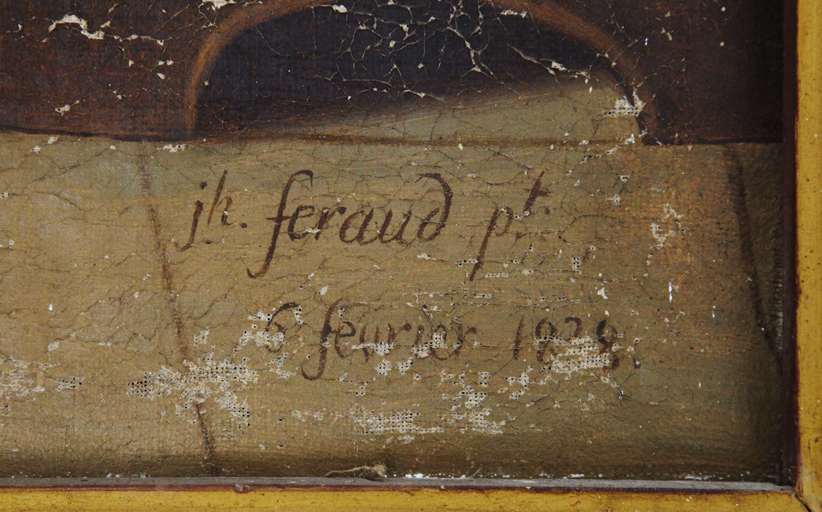 jh. feraud pt.
6 février 1828.